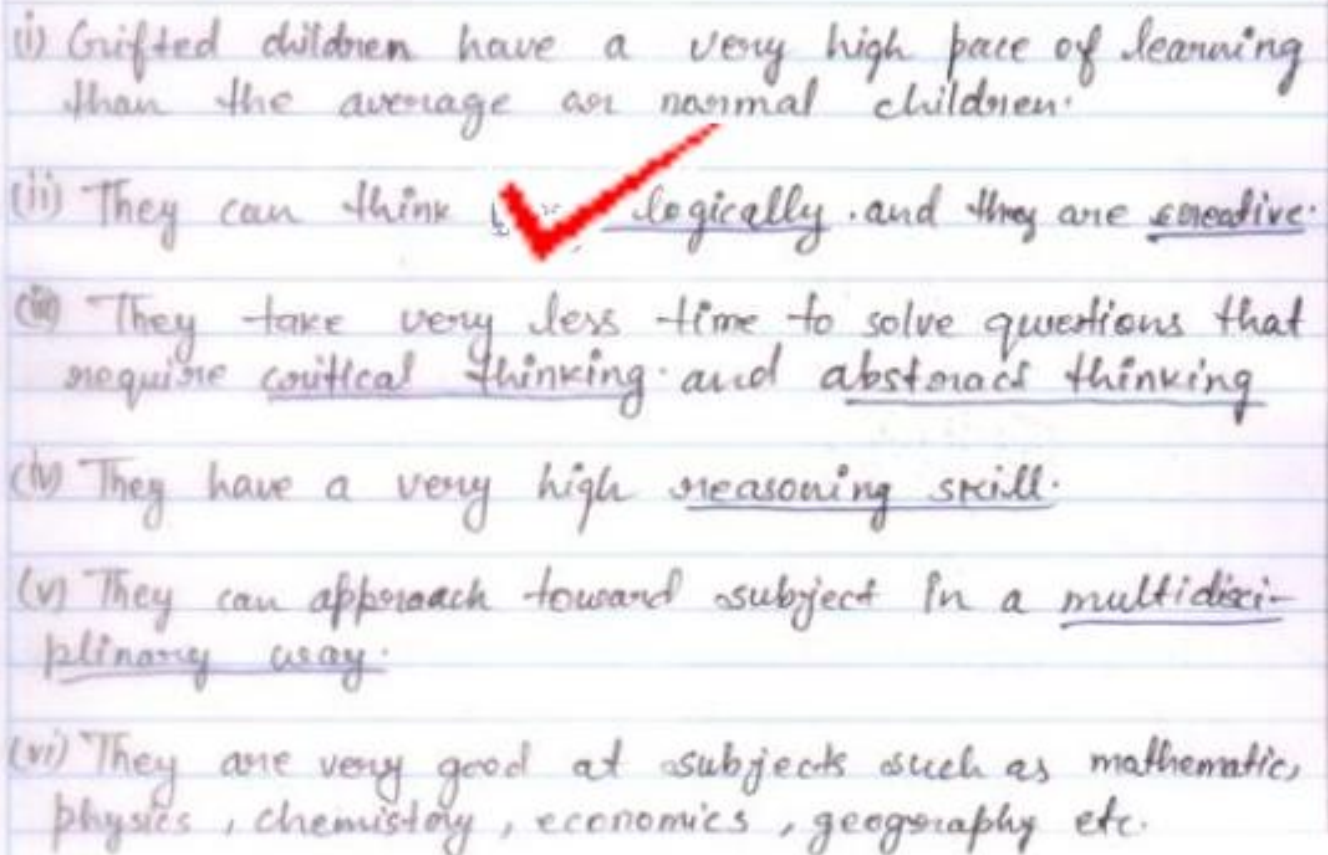 (i) Gifted children have a very high pace of learning
than the average or normal children.
(ii) They can think logically and they are creative.
(iii) They take very less time to solve questions that
require critical thinking and abstract thinking
(iv) They have a very high reasoning skill.
(v) They can approach toward subject in a multidisci-
plinary way.
(vi) They are very good at subjects such as mathematic,
physics, chemistry, economics, geography etc.